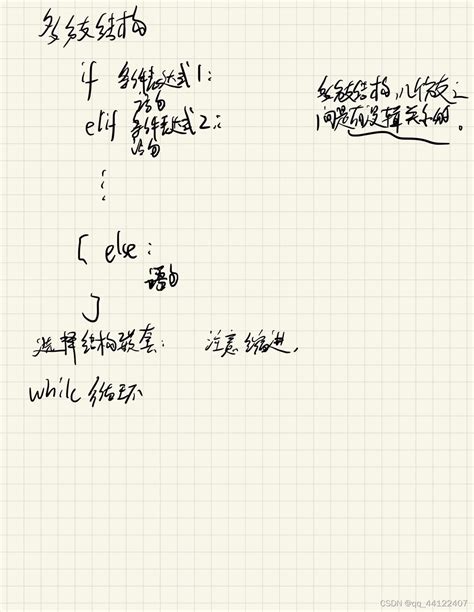 多分支结构
if 条件表达式1:
语句
elif 条件表达式2:
语句
⋮
[ else:
语句
]
多分支结构,几个分支之
间是有逻辑关系的。
选择结构嵌套: 注意缩进,
while 循环
CSDN @qq_44122407